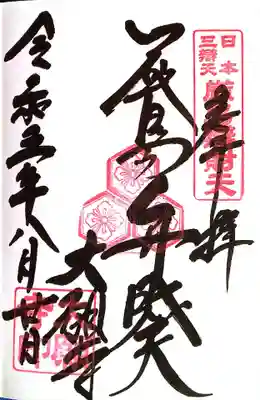 奉拝
日本
三辯天
厳島辯財天
嚴島弁財天
大願寺
令和三年八月廿日